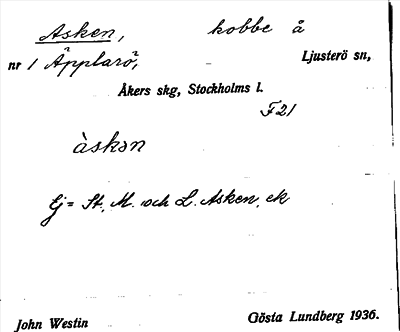 Asken, kobbe å
nr 1 Äpplarö, Ljusterö sn,
Åkers skg, Stockholms l.
F21
àskən
Ej = St. M. och L. Asken, ek
John Westin Gösta Lundberg 1936.